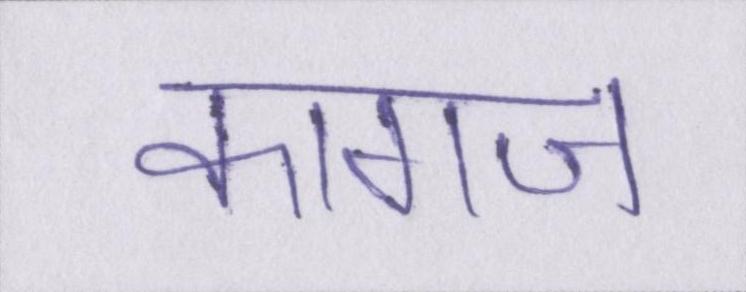 कागज